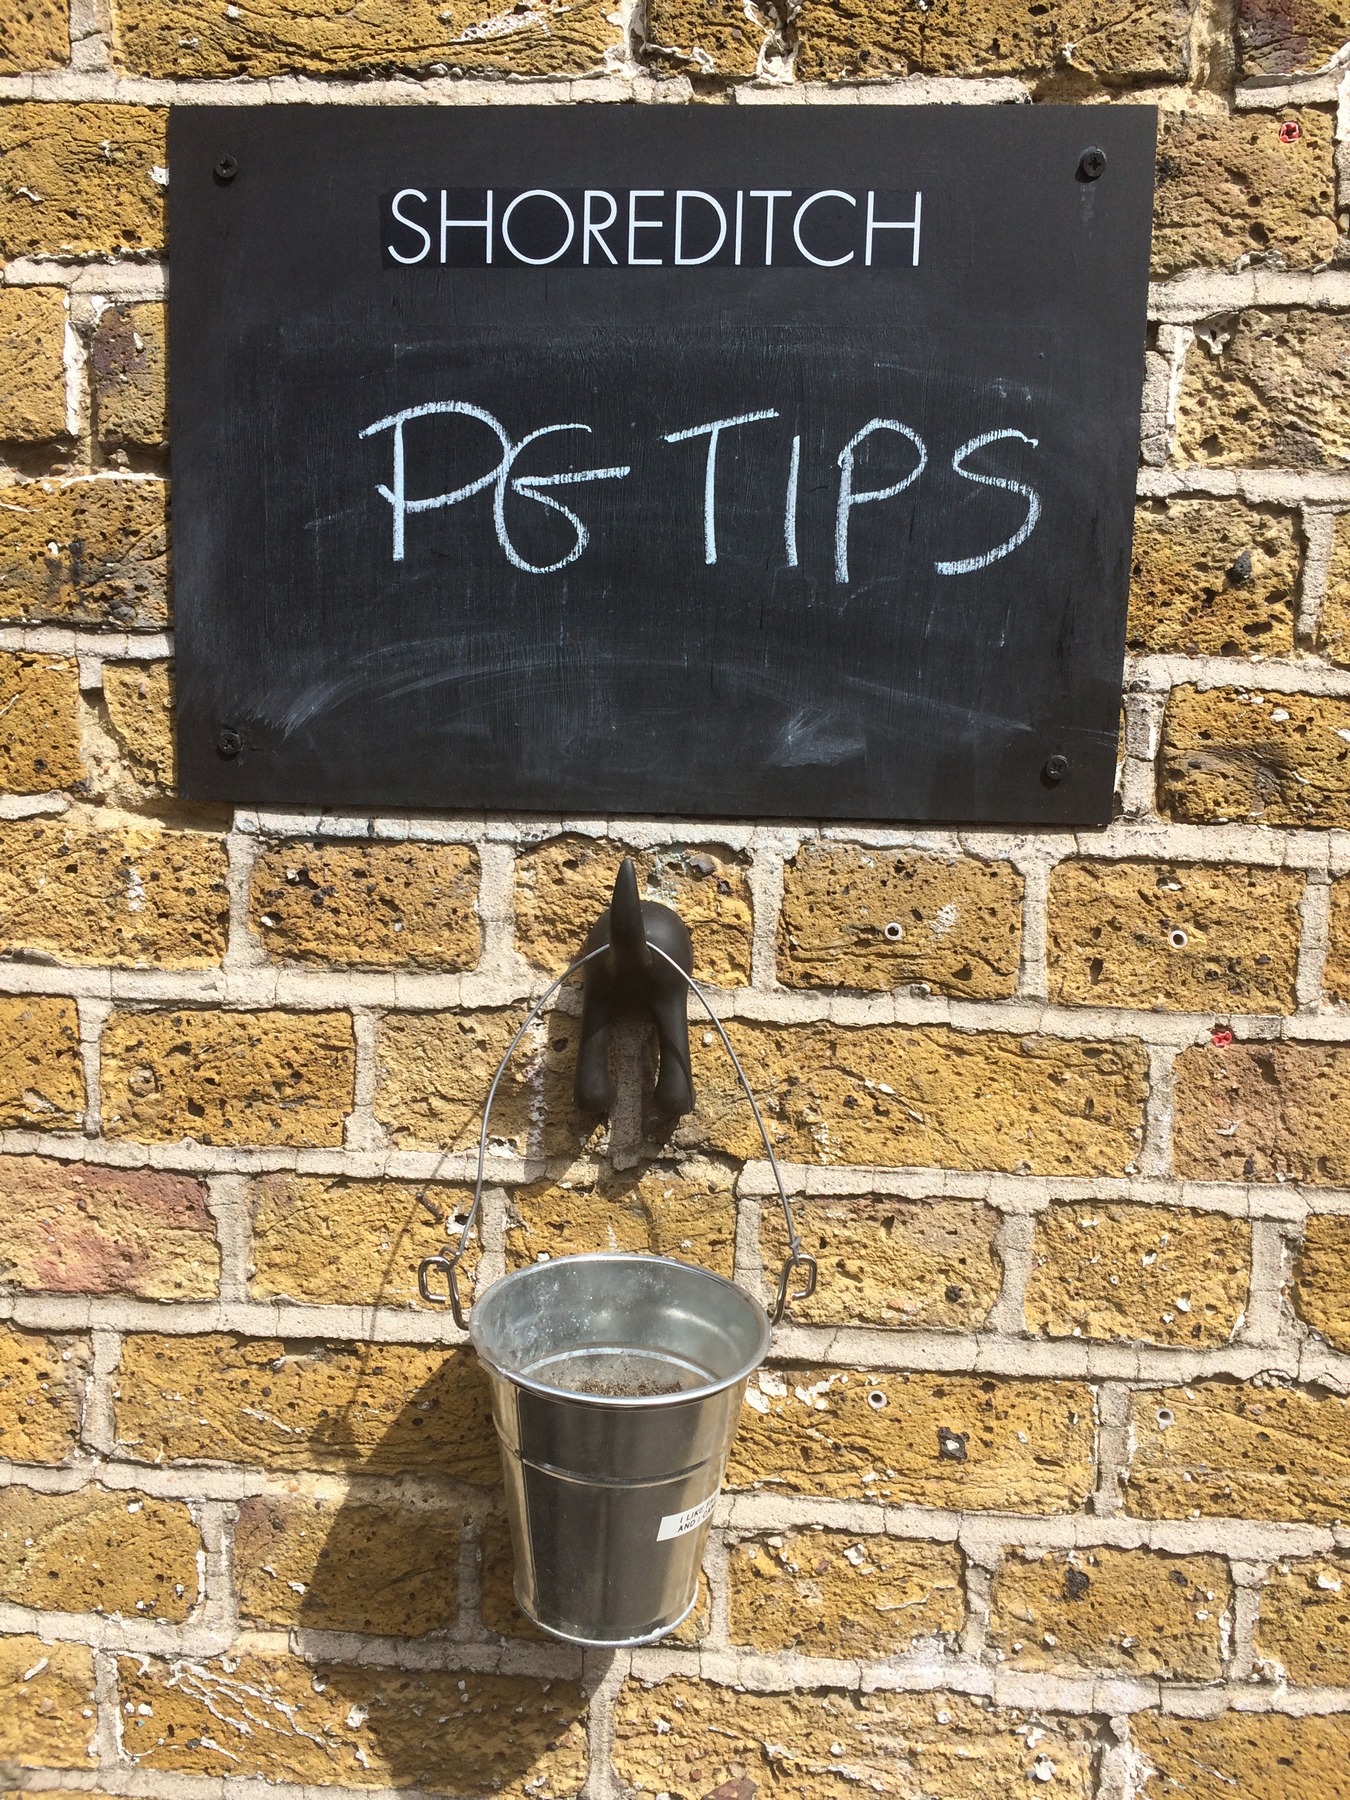 SHOREDITCH
PG TIPS
I LIKE
AND I